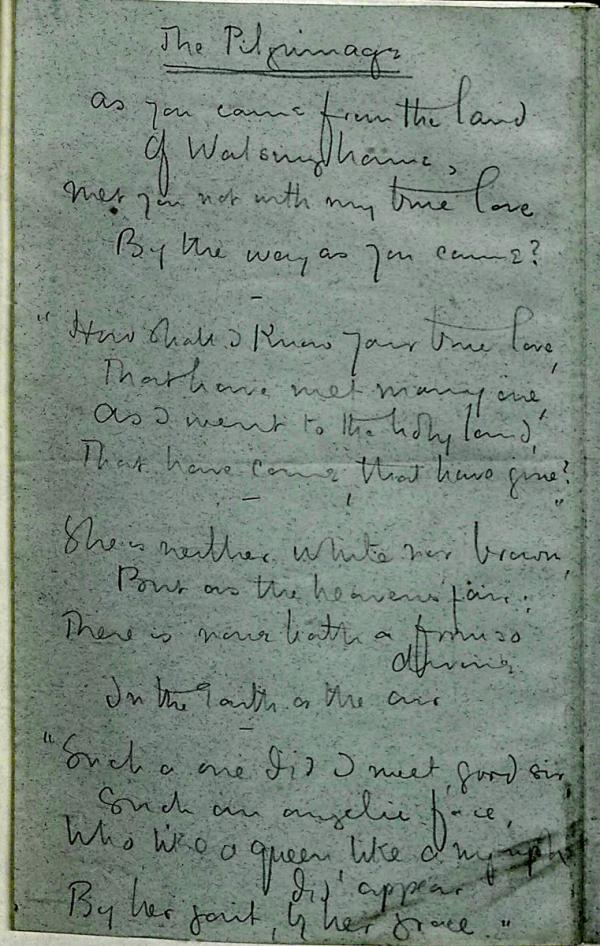 The Pilgrimage
As you came from the land
Of Walsinghame,
Met you not with my true love
By the way as you came?
"How shall I know your true love,
That have met many one,
As I went to the holy land,
That have come, that have gone?"
She is neither white nor brown,
But as the heavens fair;
There is none hath a form so
divine
In the Earth or the air
"Such a one did I meet, good sir,
Such an angelic face,
Who like a queen, like a nymph
did appear
By her gait, by her grace."